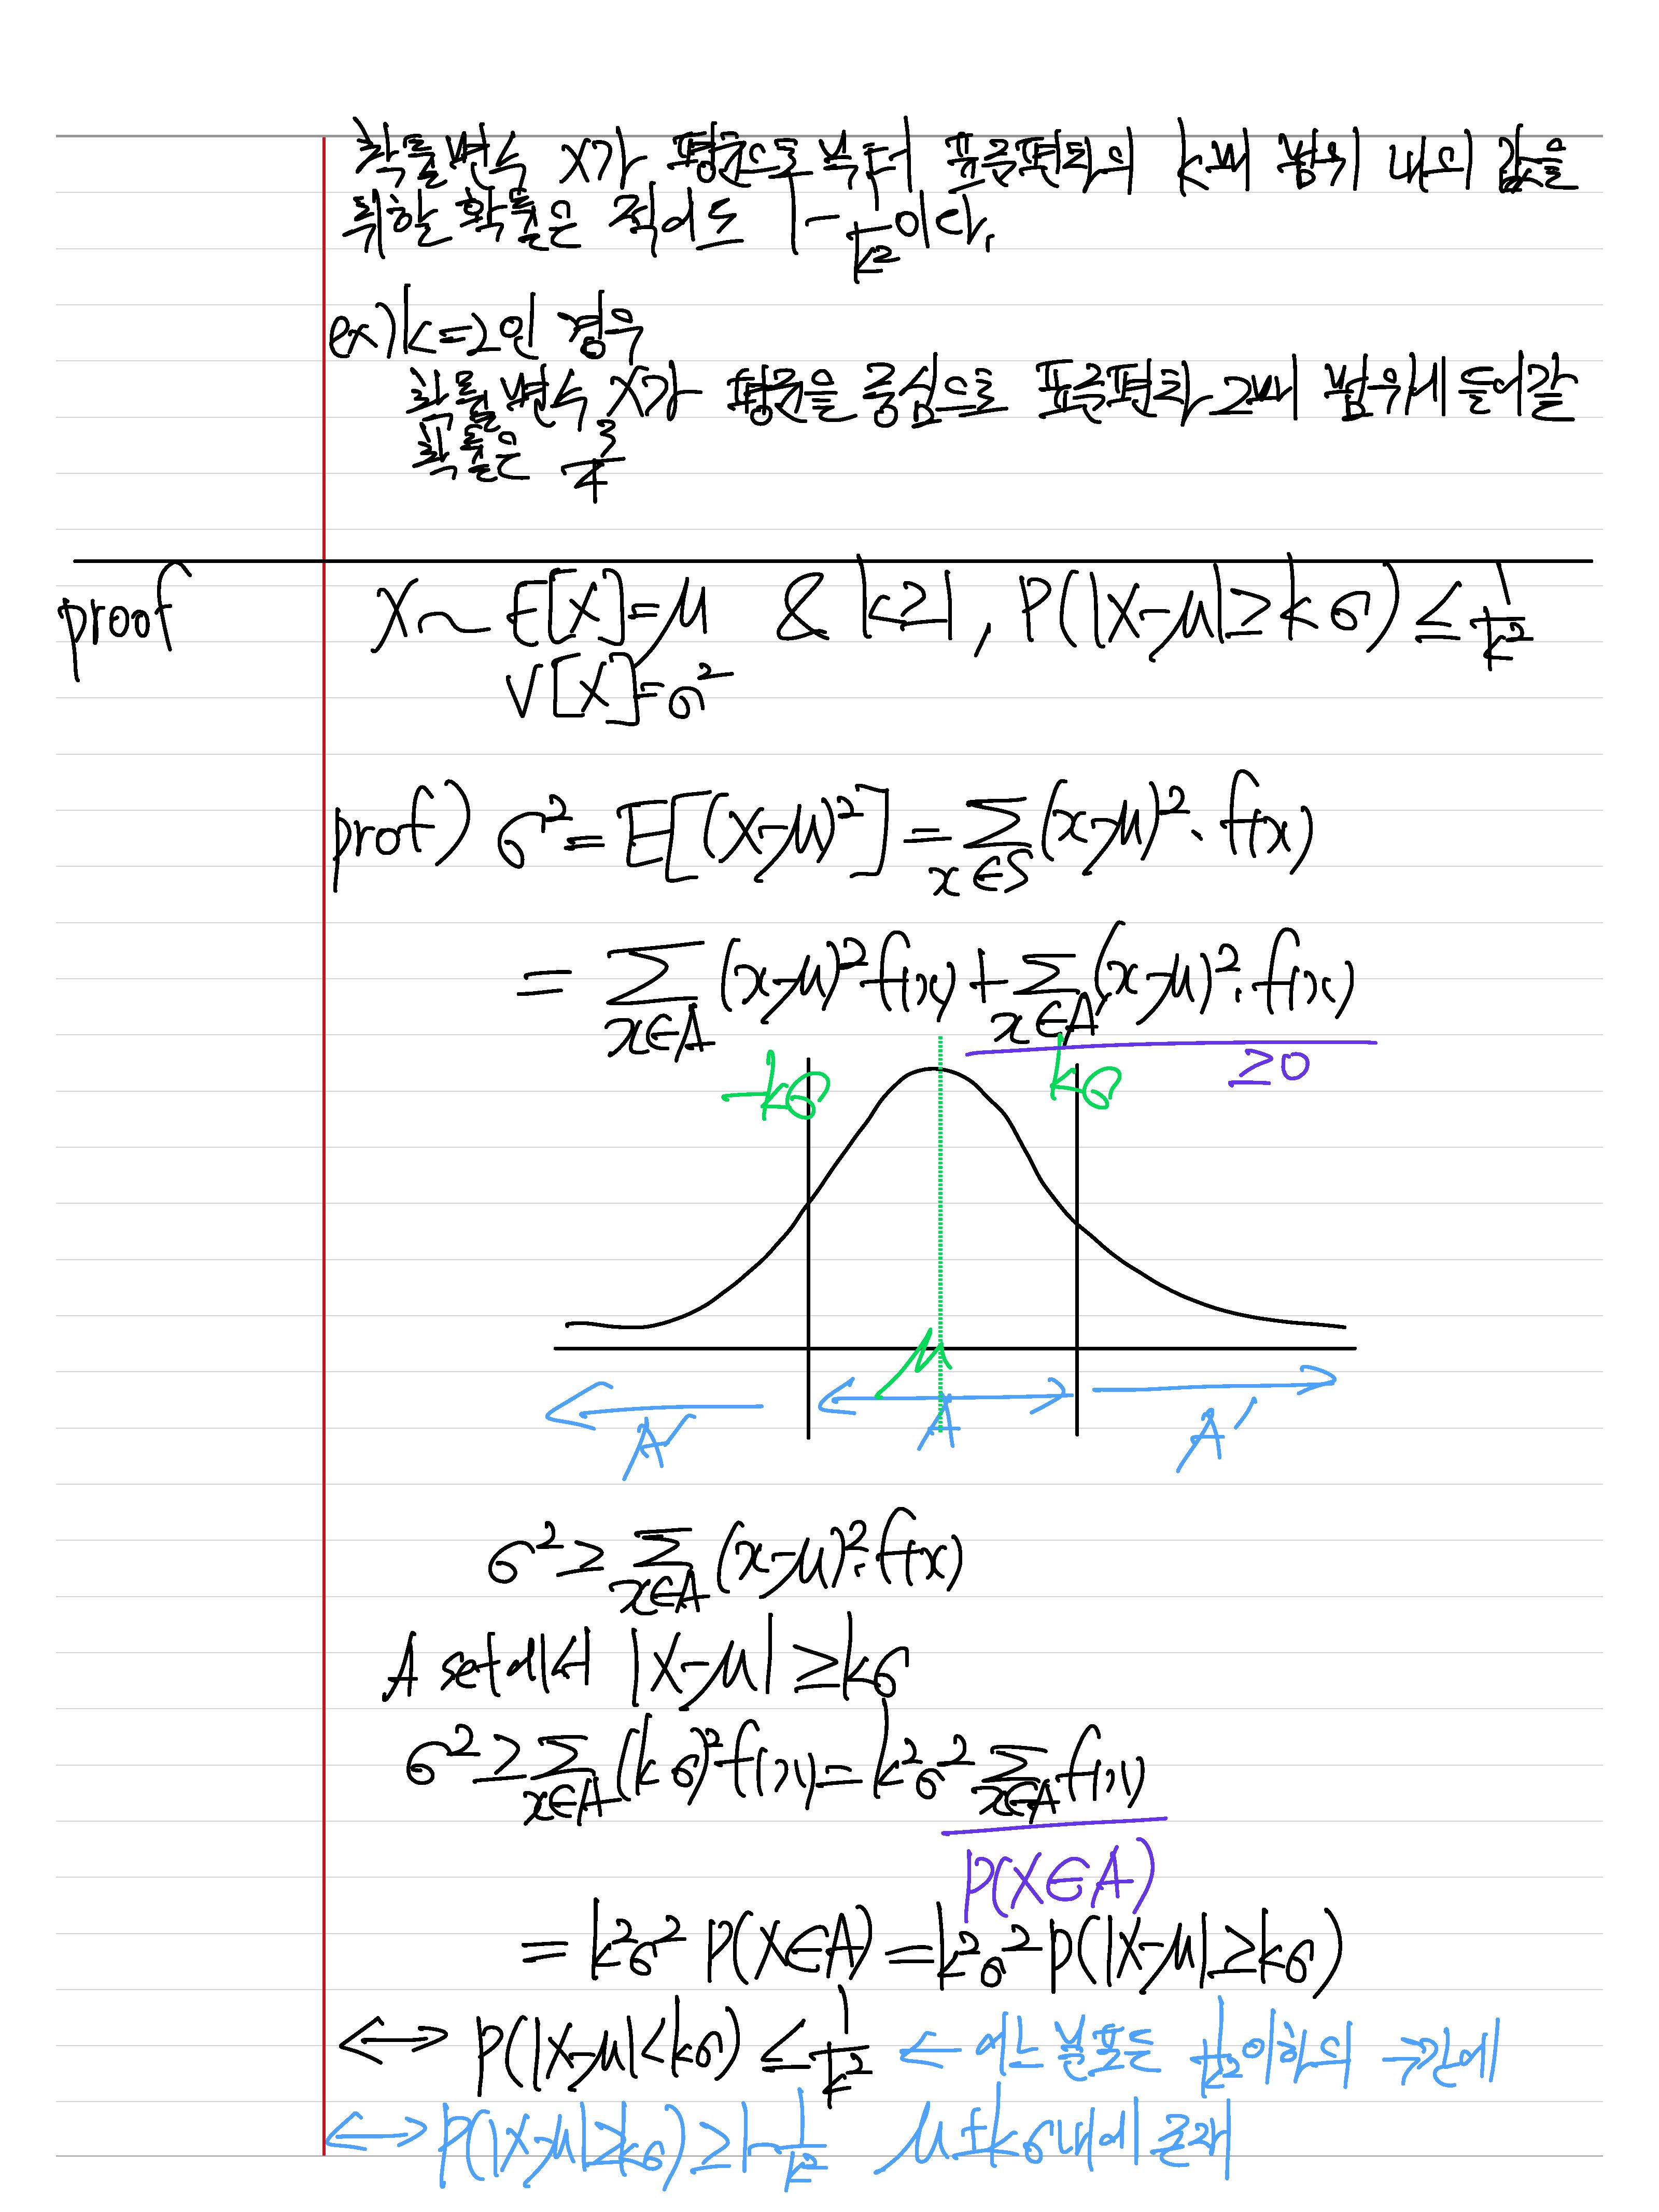 확률변수 X가 평균으로부터 표준편차의 k배 범위 내의 값을
취할 확률은 적어도 1-1/k²이다.
ex) k=2인 경우
확률변수 X가 평균을 중심으로 표준편차 2배 범위에 들어갈
확률은 3/4
proof X~E[X]=μ & k≥1, P(|X-μ|≥kσ)≤1/k²
V[X]=σ²
prof) σ²=E[(X-μ)²]=∑_{x∈S}(x-μ)²·f(x)
=∑_{x∈A}(x-μ)²f(x)+∑_{x∈A'}(x-μ)²·f(x)
≥0
-kσ kσ
μ
A' A A'
σ²≥∑_{x∈A}(x-μ)²·f(x)
A set에서 |X-μ|≥kσ
σ²≥∑_{x∈A}(kσ)²f(x)=k²σ²∑_{x∈A}f(x)
P(X∈A)
=k²σ²P(X∈A)=k²σ²P(|X-μ|≥kσ)
↔ P(|X-μ|<kσ)≤1/k² ← 어느 분포든 1/k²이하의
↔ P(|X-μ|≥kσ)≥1-1/k² μ±kσ내에 존재